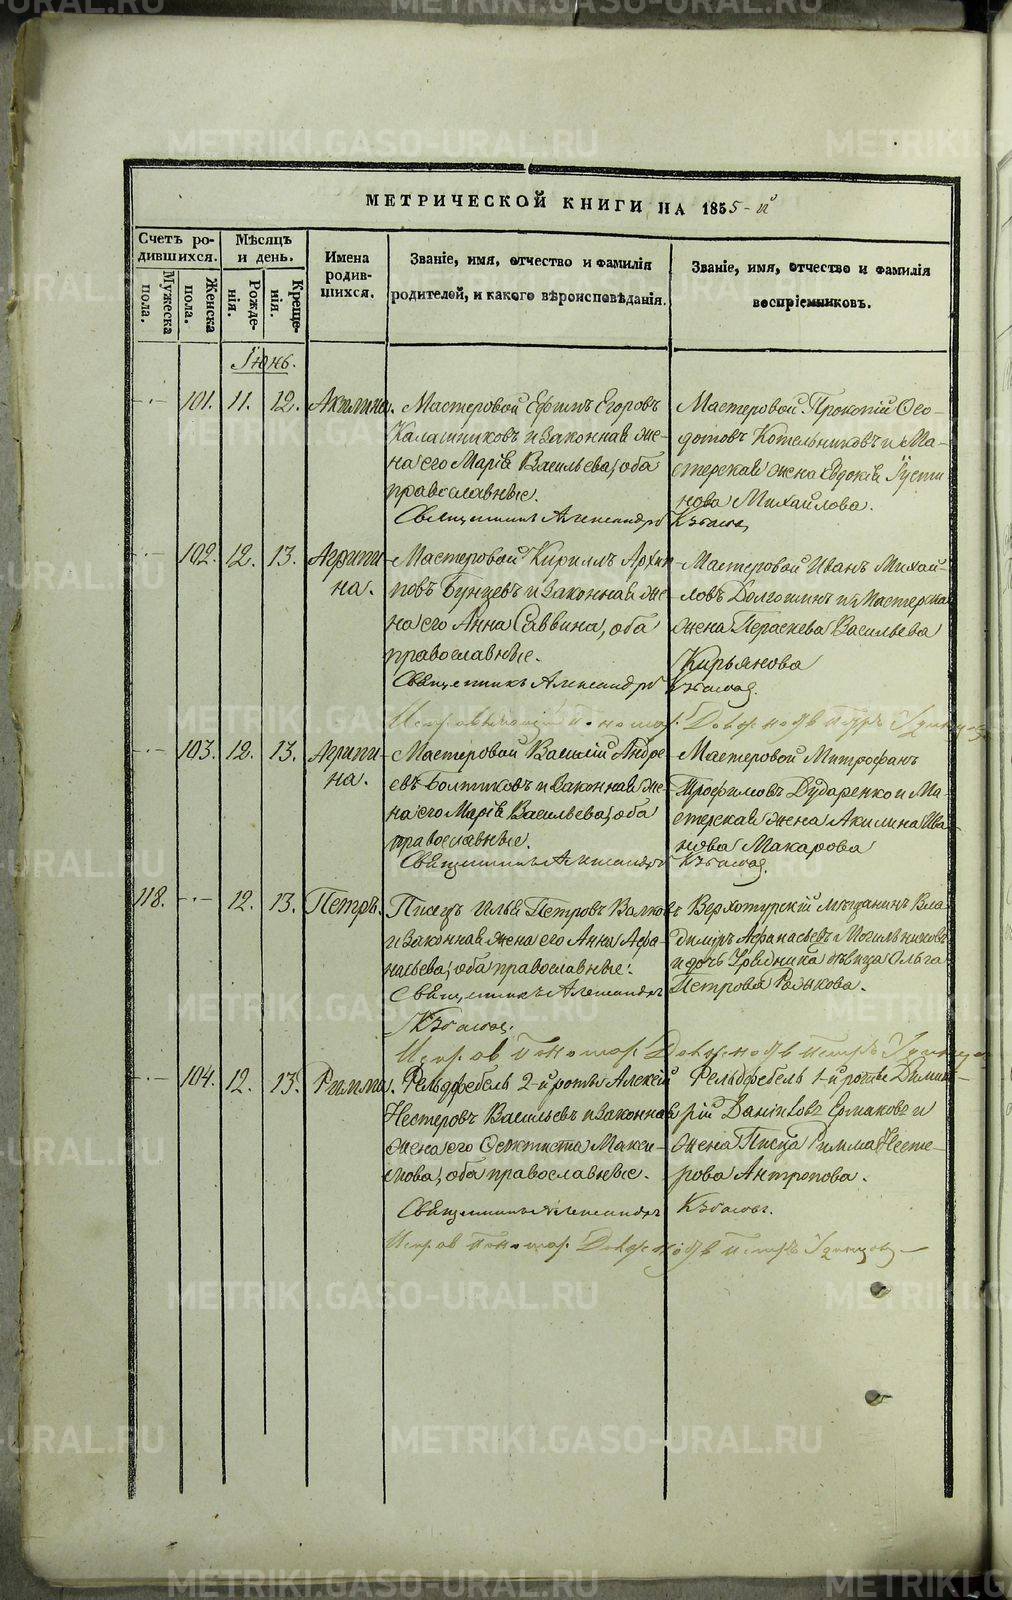 МЕТРИЧЕСКОЙ КНИГИ НА 1855-й
Счетъ ро-
дившихся.
Мужеска
пола.
Женска
пола.
Мѣсяцъ
и день.
Рожде-
нія.
Креще-
нія.
Имена
родив-
шихся.
Званіе, имя, отчество и фамилія
родителей, и какого вѣроисповѣданія.
Званіе, имя, отчество и фамилія
воспріемниковъ.
Іюнь.
101. 11. 12. Акилина.
Мастеровой Ефимъ Егоровъ
Калашниковъ и законная же-
на его Марія Васильева, оба
православные.
Священникъ Александръ
Мастеровой Прокопій Ѳео-
дотовъ Котельниковъ и Ма-
стерская жена Евдокія Іусти
нова Михайлова.
102. 12. 13. Агрипи-
на.
Мастеровой Кириллъ Архи
повъ Бунцевъ и законная же-
на его Анна Саввина, оба
православные.
Священникъ Александръ
Мастеровой Иванъ Михай-
ловъ Долгошинъ и Мастерска
жена Параскева Васильева
Кирьянова
103. 12. 13. Агрипи-
на.
Мастеровой Василій Андре
евъ Болтиковъ и законная же-
на его Марія Васильева, оба
православные.
Священникъ Александръ
Мастеровой Митрофанъ
Трофимовъ Дударенко и Ма
стерская жена Акилина Ива
нова Макарова
118. 12. 13. Петръ.
Писецъ Илья Петровъ Волковъ
и законная жена его Анна Афа-
насьева, оба православные.
Священникъ Александръ
Верхотурскій мѣщанинъ Вла
димиръ Афанасьевъ Могильниковъ
и дочь Урядника дѣвица Ольга
Петрова
104. 12. 13. Римма.
Фельдфебель 2-й роты Алексій
Нестеровъ Васильевъ и законная
жена его Ѳеоктиста Макси-
мова, оба православные.
Священникъ Александръ
Фельдфебель 1-й роты Дими-
трій Даніиловъ Ермаковъ и
жена Писца Римма Несте-
рова Антропова.
METRIKI.GASO-URAL.RU